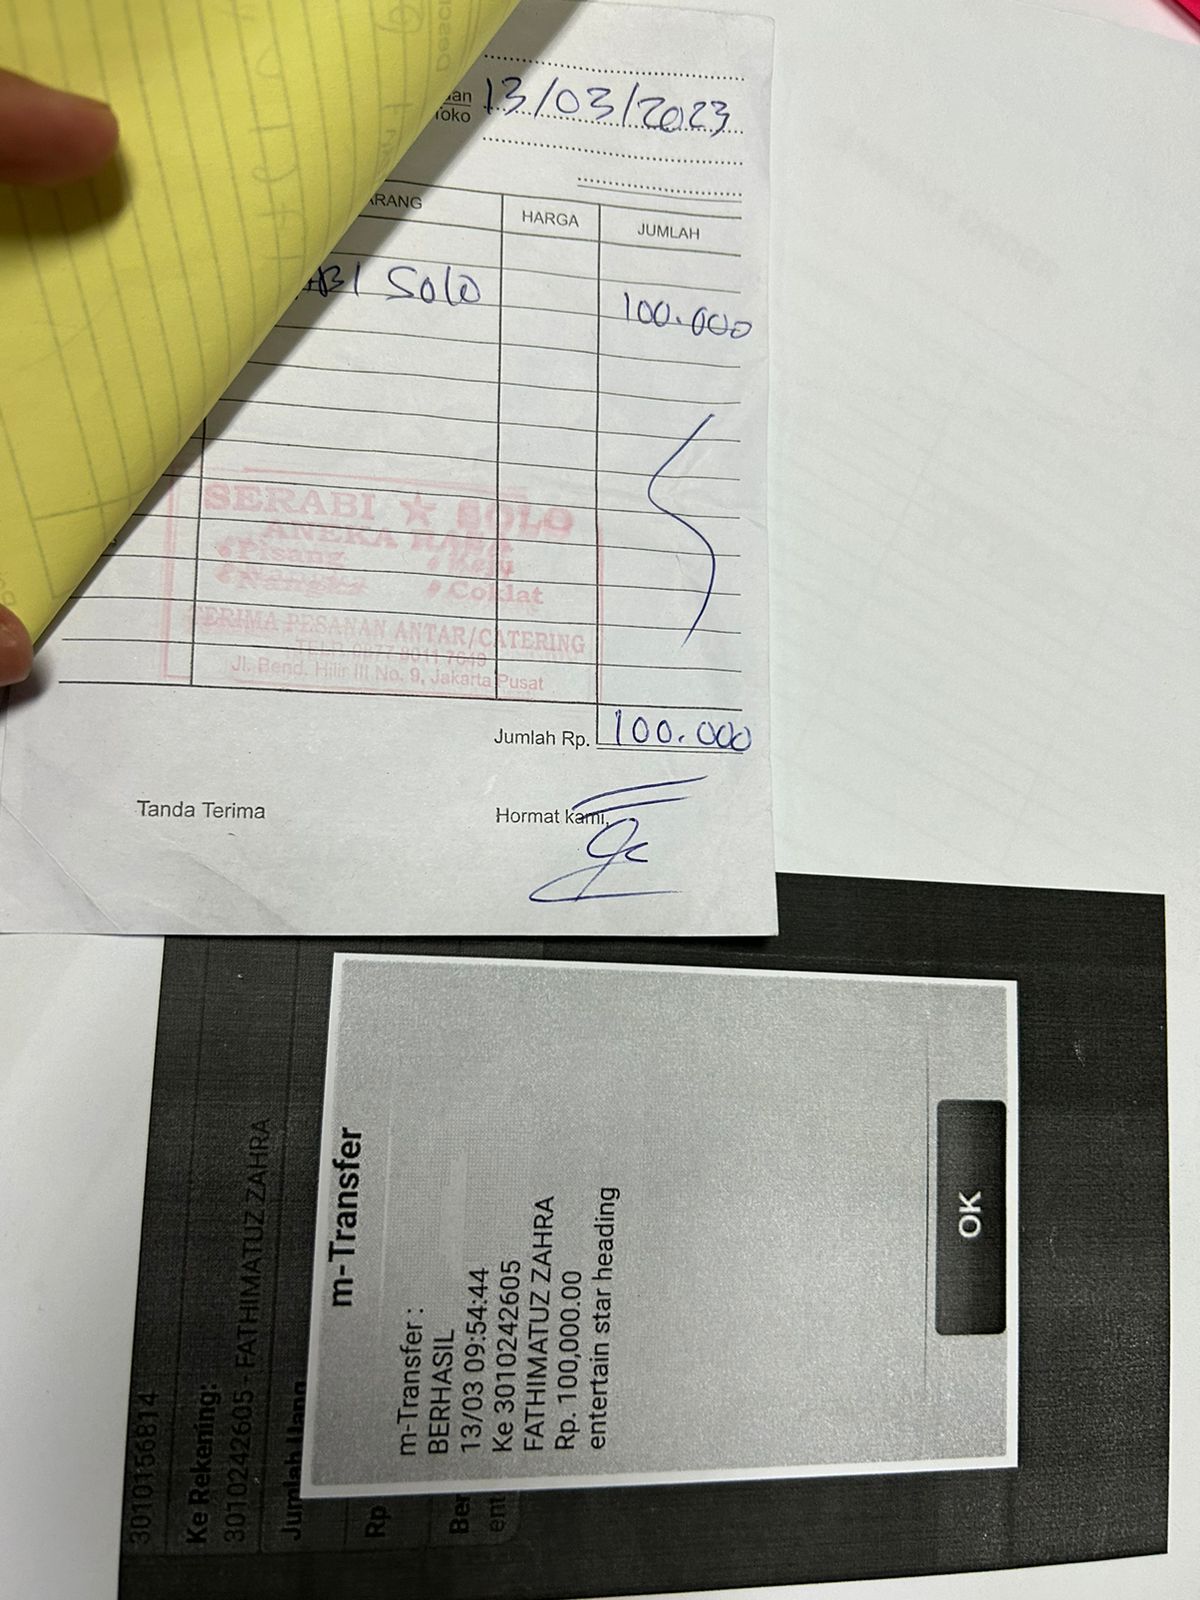 an
Toko 13/03/2023
ARANG HARGA JUMLAH
ABI Solo 100.000
SERABI ★ SOLO
ANEKA RASA
• Pisang • Keju
• Nangka • Coklat
TERIMA PESANAN ANTAR/CATERING
Jl. Bend. Hilir III No. 9, Jakarta Pusat
Jumlah Rp. 100.000
Tanda Terima Hormat kami,
3010156814
Ke Rekening:
3010242605 - FATHIMATUZ ZAHRA
Jumlah Uang
Rp
Ber
ent
m-Transfer
m-Transfer :
BERHASIL
13/03 09:54:44
Ke 3010242605
FATHIMATUZ ZAHRA
Rp. 100,000.00
entertain star heading
OK